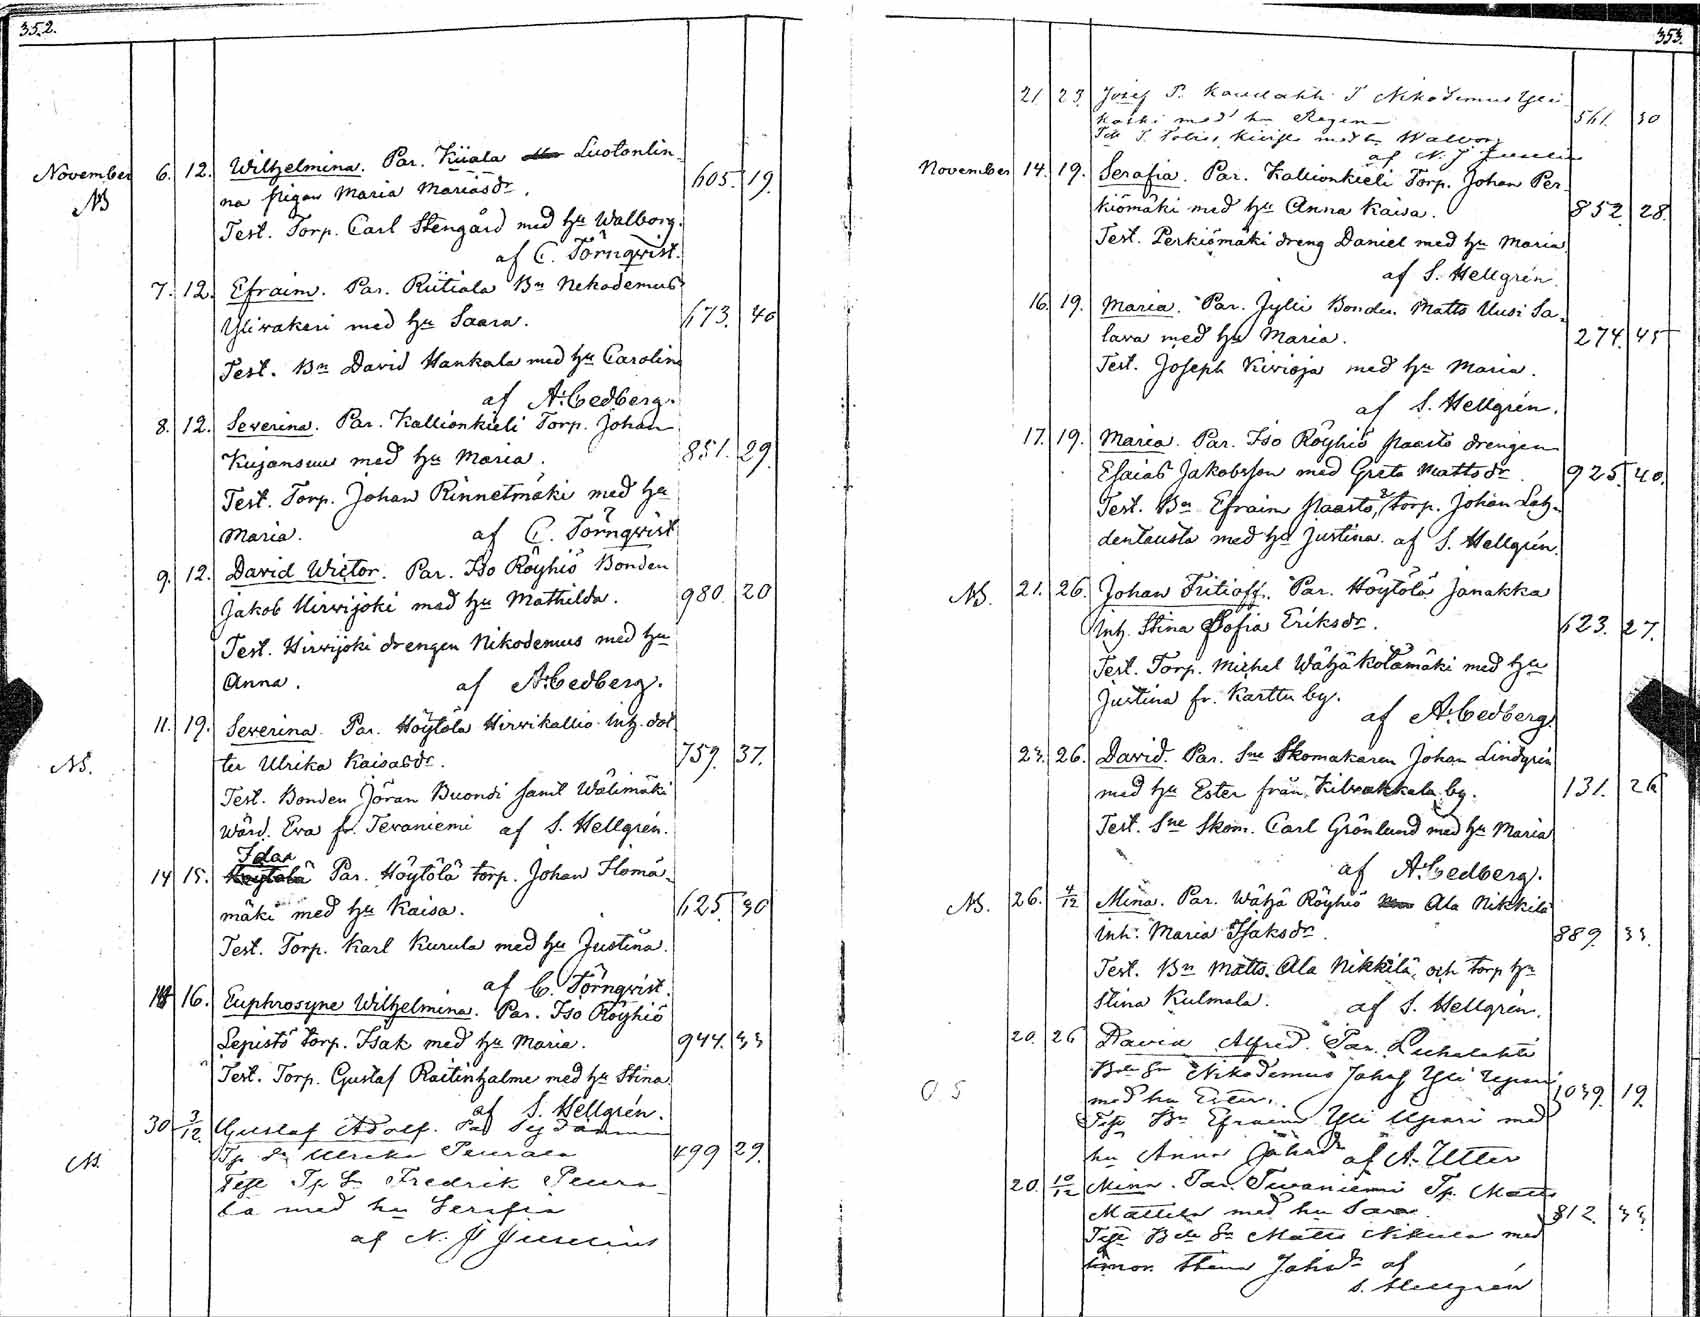 352.
November 6. 12. Wilhelmina. Par. Kiiala Luotonlin-
NB
na pigan Maria Mariasdr. 605. 19.
Test. Torp. Carl Stengård med hu Walborg.
af C. Törnqvist.
7. 12. Efraim. Par. Riitiala Bn Nekodemus
Yliwakeri med hu Saara. 673. 40
Test. Bn David Hankala med hu Carolina
af A. Cedberg.
8. 12. Severina. Par. Kallionkieli Torp. Johan
Kujansuu med hu Maria. 851. 29.
Test. Torp. Johan Rinnetmäki med hu
Maria. af C. Törnqvist
9. 12. David Wictor. Par. Iso Röyhiö Bonden
Jakob Hirwijoki med hu Mathilda. 980. 20
Test. Hirwijoki drengen Nikodemus med hu
Anna. af A. Cedberg.
11. 19. Severina. Par. Höytölä Hirwikallio inh. dot
NB. ter Ulrika Kaisasdr. 759. 37.
Test. Bonden Jöran Buondi samt Wälimäki
wärd. Eva fr. Tevaniemi af S. Hellgrén.
Idaa
14 15. Par. Höytölä torp. Johan Homä-
mäki med hu Kaisa. 625. 30
Test. Torp. Karl Kurula med hu Justina.
af C. Törnqvist.
16. Euphrosyne Wilhelmina. Par. Iso Röyhiö
Lepistö torp. Isak med hu Maria. 944. 33
Test. Torp. Gustaf Raitinhalme med hu Stina
af S. Hellgrén.
30 3/12. Gustaf Adolf. Par
NB. Tp Dr Ulrika Peurala 499 29.
Test Tp Sn Fredrik Peura-
la med hu Serafia
af N. J Juselius
353.
21. 23. Josef P. Nikodemus Yli-
koski med hu Regina 561. 30
med hu Walborg
af N. J Juselius
November 14. 19. Serafia. Par. Kallionkieli Torp. Johan Per-
kiömäki med hu Anna Kaisa. 852. 28.
Test. Perkiömäki dreng Daniel med hu Maria
af S. Hellgrén.
16. 19. Maria. Par. Jylli Bonden Matts Uusi Sa-
lava med hu Maria. 274. 45
Test. Joseph Kivioja med hu Maria.
af S. Hellgrén.
17. 19. Maria. Par. Iso Röyhiö Paasto drengen
Esaias Jakobsson med Greta Mattsdr. 925. 40.
Test. Bn Efraim Paasto, torp. Johan Lah-
dentausta med hu Justina. af S. Hellgrén.
NB. 21. 26. Johan Fritioff. Par. Höytölä Janakka
Inh. Stina Sofia Eriksdr. 623. 27.
Test. Torp. Michel Wähäkotamäki med hu
Justina fr. Karttu by.
af A. Cedberg.
23. 26. David. Par. Sne Skomakaren Johan Lindgrén
med hu Ester från Kilvakkala by. 131. 26
Test. Sne Skom. Carl Grönlund med hu Maria
af A. Cedberg.
NB. 26. 4/12 Mina. Par. Wähä Röyhiö Ala Nikkilä
inh. Maria Isaksdr. 889. 33.
Test. Bn Matts Ala Nikkilä och torp hu
Stina Kulmala. af S. Hellgrén.
20. 26 David Alfred. Par. Luhalahti
O S Nikodemus Yli Upari
med hu Ester. 1039. 19.
Test Bn Efraim Yli Upari med
hu Anna af A. Utter
20. 10/12 Mina. Par. Tevaniemi Tp. Matts
Mattila med hu Sara 812. 33
Test Matts Nikula med
af
S. Hellgrén